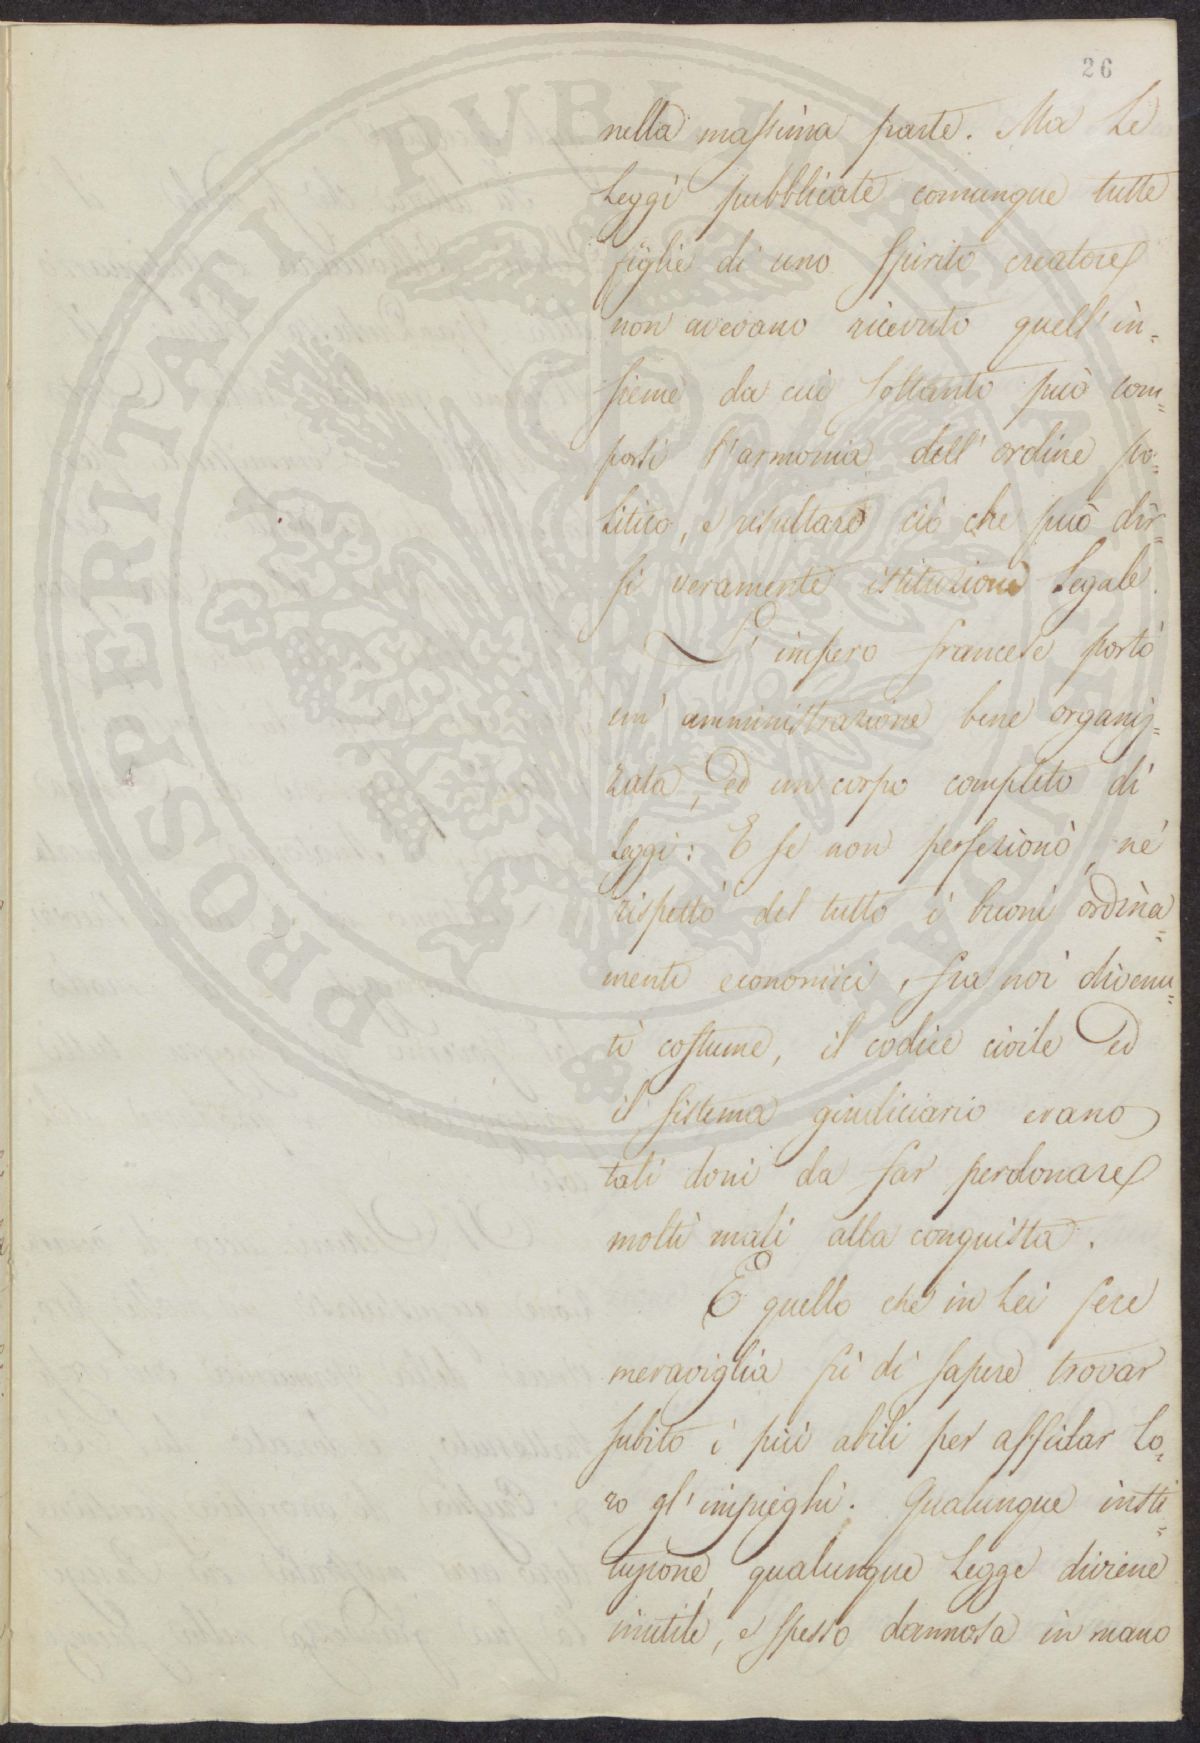 26
nella massima parte. Ma le
Leggi pubblicate comunque tutte
figlie di uno spirito creatore
non avevano ricevuto quell'in=
sieme da cui soltanto può com=
porsi l'armonia dell'ordine po=
litico, e risultare ciò che può dir=
si veramente istituzione legale.
L'impero francese portò
un'amministrazione bene organiz=
zata, ed un corpo completo di
leggi: E se non perfezionò, né
rispettò del tutto i buoni ordina=
menti economici, fra noi divenu=
ti costume, il codice civile ed
il sistema giudiciario erano
tali doni da far perdonare
molti mali alla conquista.
E quello che in Lei fece
meraviglia fù di sapere trovar
subito i più abili per affidar lo=
ro gl'impieghi. Qualunque insti=
tuzione, qualunque Legge diviene
inutile, e spesso dannosa in mano
PROSPERITATI PVBLICAE